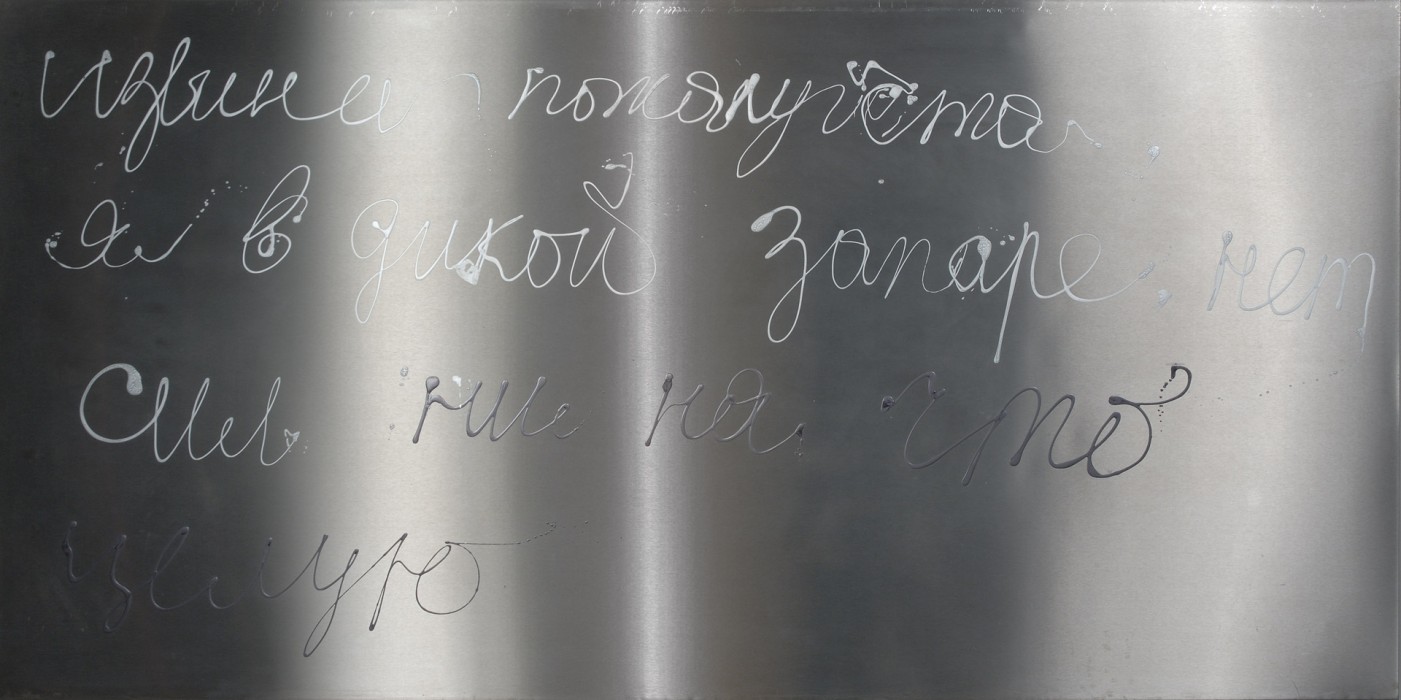 извини пожалуйста.
я в дикой запаре. нет
сил ни на что
целую